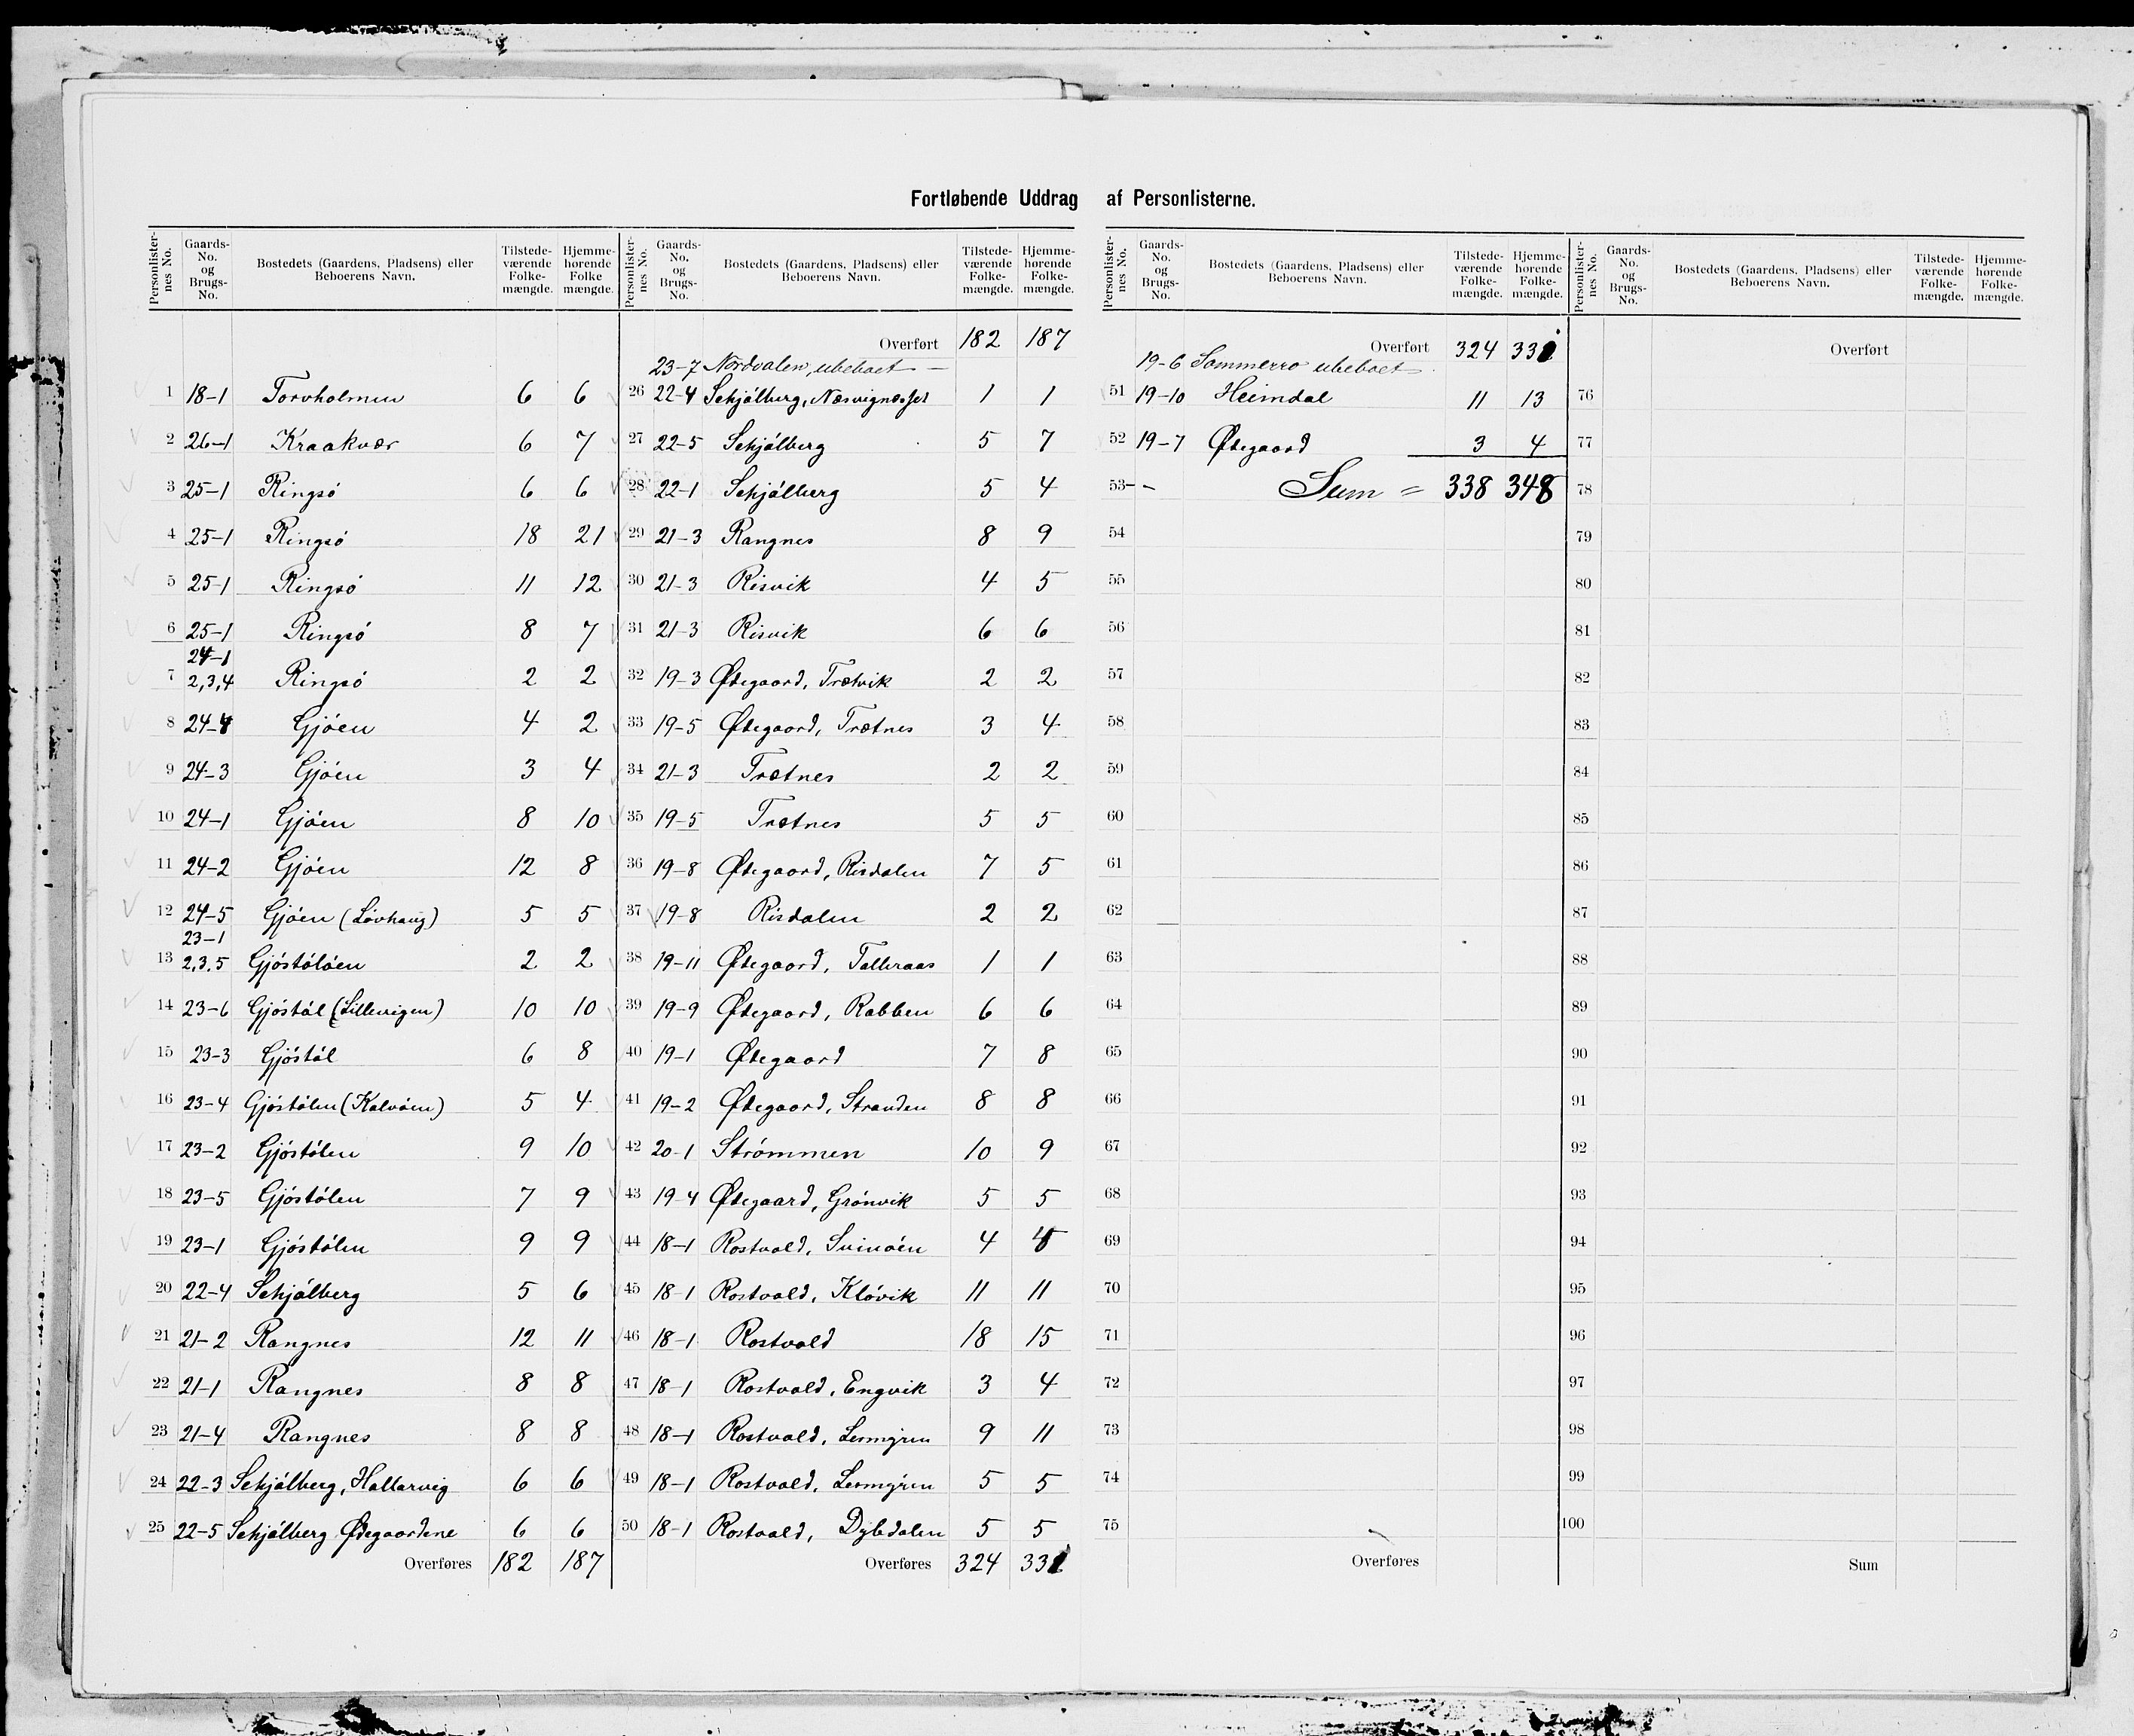 Fortløbende Uddrag af Personlisterne.
Personlister-nes No. Gaards-No. og Brugs-No. Bostedets (Gaardens, Pladsens) eller Beboerens Navn. Tilstede-værende Folke-mængde. Hjemme-hørende Folke mængde.
1 18-1 Torvholmen 6 6
2 26-1 Kraakvær 6 7
3 25-1 Ringsö 6 6
4 25-1 Ringsö 18 21
5 25-1 Ringsö 11 12
6 25-1 Ringsö 8 7
24-1
7 2,3,4 Ringsö 2 2
8 24-4 Gjöen 4 2
9 24-3 Gjöen 3 4
10 24-1 Gjöen 8 10
11 24-2 Gjöen 12 8
12 24-5 Gjöen (Lövhaug) 5 5
23-1
13 2,3,5 Gjöstölöen 2 2
14 23-6 Gjöstöl (Lillevigen) 10 10
15 23-3 Gjöstöl 6 8
16 23-4 Gjöstölen (Kalvöen) 5 4
17 23-2 Gjöstölen 9 10
18 23-5 Gjöstölen 7 9
19 23-1 Gjöstölen 9 9
20 22-4 Schjölberg 5 6
21 21-2 Rangnes 12 11
22 21-1 Rangnes 8 8
23 21-4 Rangnes 8 8
24 22-3 Schjölberg, Hallarvig 6 6
25 22-5 Schjölberg Ødegaardene 6 6
Overføres 182 187
Personlister-nes No. Gaards-No. og Brugs-No. Bostedets (Gaardens, Pladsens) eller Beboerens Navn. Tilstede-værende Folke-mængde. Hjemme-hørende Folke-mængde.
Overført 182 187
23-7 Nordvalen, ubeboet —
26 22-4 Schjölberg, Næsvignesset 1 1
27 22-5 Schjölberg 5 7
28 22-1 Schjölberg 5 4
29 21-3 Rangnes 8 9
30 21-3 Risvik 4 5
31 21-3 Risvik 6 6
32 19-3 Ødegaard, Trætvik 2 2
33 19-5 Ødegaard, Trætnes 3 4
34 21-3 Trætnes 2 2
35 19-5 Trætnes 5 5
36 19-8 Ødegaard, Risdalen 7 5
37 19-8 Risdalen 2 2
38 19-11 Ødegaard, Talleraas 1 1
39 19-9 Ødegaard, Rabben 6 6
40 19-1 Ødegaard 7 8
41 19-2 Ødegaard, Stranden 8 8
42 20-1 Strömmen 10 9
43 19-4 Ødegaard, Grönvik 5 5
44 18-1 Rostvold, Svinöen 4
45 18-1 Rostvold, Klövik 11 11
46 18-1 Rostvold 18 15
47 18-1 Rostvold, Engvik 3 4
48 18-1 Rostvold, 9 11
49 18-1 Rostvold, 5 5
50 18-1 Rostvold, Dybdalen 5 5
Overføres 324 331
Personlister-nes No. Gaards-No. og Brugs-No. Bostedets (Gaardens, Pladsens) eller Beboerens Navn. Tilstede-værende Folke-mængde. Hjemme-hørende Folke-mængde.
Overført 324 331
19-6 Sommerro ubeboet —
51 19-10 Heimdal 11 13
52 19-7 Ødegaard 3 4
53 - - Sum = 338 348
54
55
56
57
58
59
60
61
62
63
64
65
66
67
68
69
70
71
72
73
74
75
Overføres
Personlister-nes No. Gaards-No. og Brugs-No. Bostedets (Gaardens, Pladsens) eller Beboerens Navn. Tilstede-værende Folke-mængde. Hjemme-hørende Folke-mængde.
Overført
76
77
78
79
80
81
82
83
84
85
86
87
88
89
90
91
92
93
94
95
96
97
98
99
100
Sum